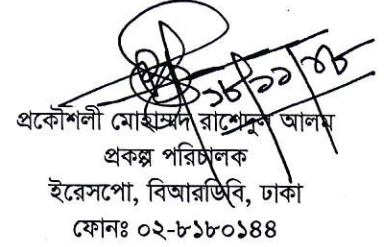 ১৮/১১/১৮
প্রকৌশলী মোহাম্মদ রাশেদুল আলম
প্রকল্প পরিচালক
ইরেসপো, বিআরডিবি, ঢাকা
ফোনঃ ০২-৮১৮০১৪৪